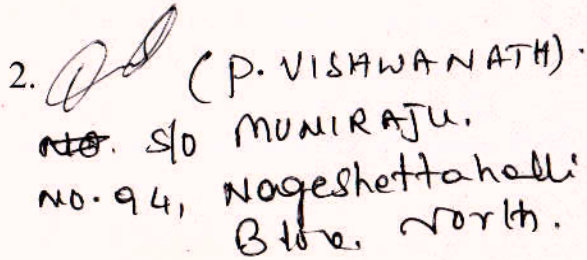 2. (P. VISHWANATH).
S/O MUNIRAJU.
NO. 94, Nageshettahalli
B'lore. North.